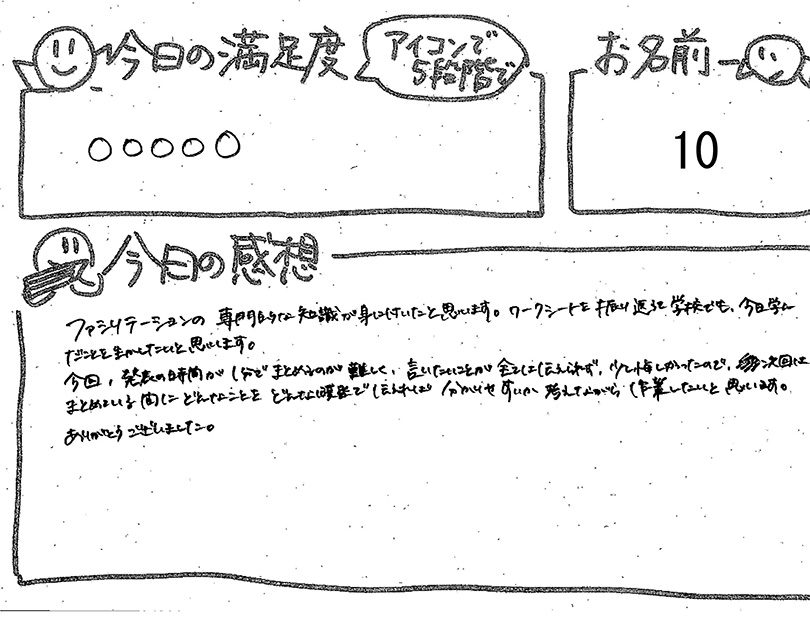 今日の満足度
アイコンで
5段階で
お名前
○○○○○
10
今日の感想
ファシリテーションの専門的な知識が身に付いたと思います。ワークシートを振り返って学校でも、今日学ん
だことを生かしたいと思います。
今回、発表の時間が1分でまとめるのが難しく、言いたいことが全ては伝えられず、少し悔しかったので、次回は
まとめている間にどんなことをどんな順序で伝えれば分かりやすいか考えながら作業したいと思います。
ありがとうございました。